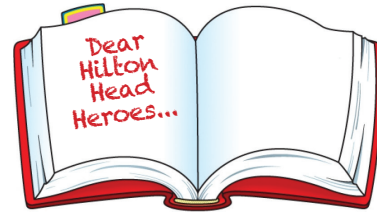 Dear
Hilton
Head
Heroes...